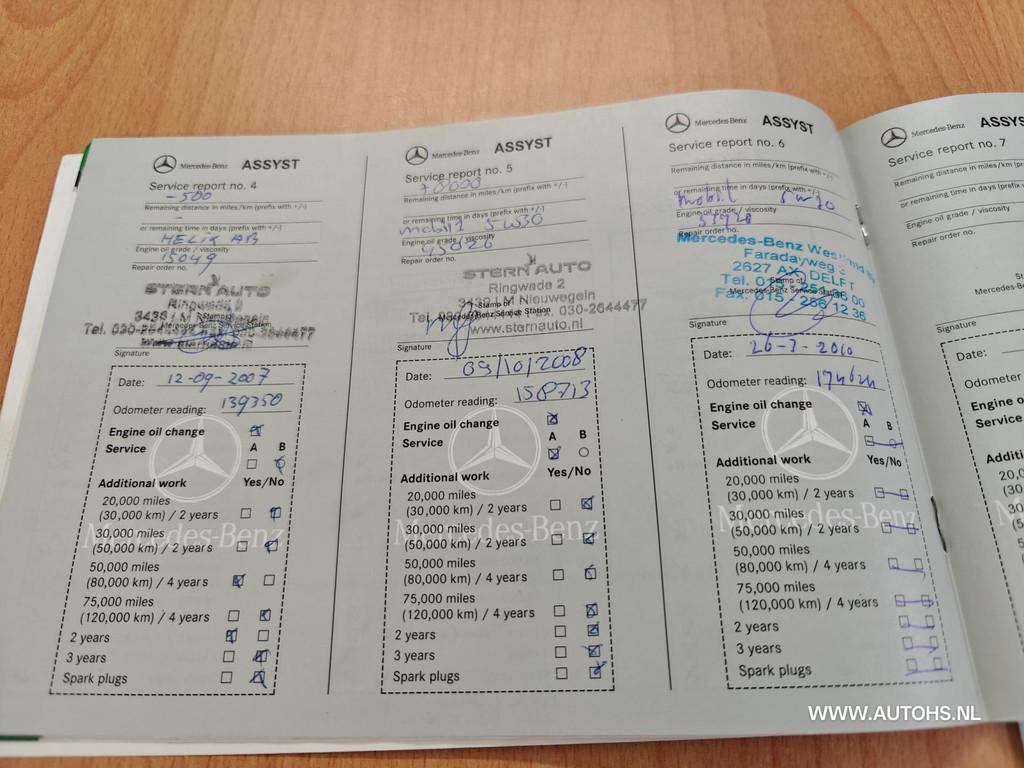 Mercedes-Benz ASSYST
Service report no. 4
-500
Remaining distance in miles/km (prefix with +/-)
-
or remaining time in days (prefix with +/-)
HELIX
Engine oil grade / viscosity
15049
Repair order no.
STERN AUTO
Ringwade 2
3439 LM Nieuwegein
Stamp of
Mercedes-Benz Service Station
Signature
Date: 12-09-2007
Odometer reading: 139350
Engine oil change
Service A B
Additional work Yes/No
20,000 miles
(30,000 km) / 2 years
30,000 miles
(50,000 km) / 2 years
50,000 miles
(80,000 km) / 4 years
75,000 miles
(120,000 km) / 4 years
2 years
3 years
Spark plugs
Mercedes-Benz
Mercedes-Benz ASSYST
Service report no. 5
Remaining distance in miles/km (prefix with +/-)
or remaining time in days (prefix with +/-)
mobil 1 5W30
Engine oil grade / viscosity
Repair order no.
STERN AUTO
Ringwade 2
3439 LM Nieuwegein
Stamp of
Fax. 030-2644477
Mercedes-Benz Service Station
www.sternauto.nl
Signature
Date: 09/10/2008
Odometer reading: 158713
Engine oil change
Service A B
Additional work Yes/No
20,000 miles
(30,000 km) / 2 years
30,000 miles
(50,000 km) / 2 years
50,000 miles
(80,000 km) / 4 years
75,000 miles
(120,000 km) / 4 years
2 years
3 years
Spark plugs
Mercedes-Benz
Mercedes-Benz ASSYST
Service report no. 6
Remaining distance in miles/km (prefix with +/-)
or remaining time in days (prefix with +/-)
mobil
Engine oil grade / viscosity
Repair order no.
Mercedes-Benz
Faradayweg
2627 AX DELFT
Stamp of
Mercedes-Benz Service Station
Fax. 015 - 286 12 36
Signature
Date: 26-7-2010
Odometer reading:
Engine oil change
Service A B
Additional work Yes/No
20,000 miles
(30,000 km) / 2 years
30,000 miles
(50,000 km) / 2 years
50,000 miles
(80,000 km) / 4 years
75,000 miles
(120,000 km) / 4 years
2 years
3 years
Spark plugs
Mercedes-Benz
Mercedes-Benz ASSYS
Service report no. 7
Remaining distance in miles/km (prefix
or remaining time in days (prefix with +/-)
Engine oil grade / viscosity
Repair order no.
Signature
Date:
Odometer
Engine o
Service
Additi
WWW.AUTOHS.NL